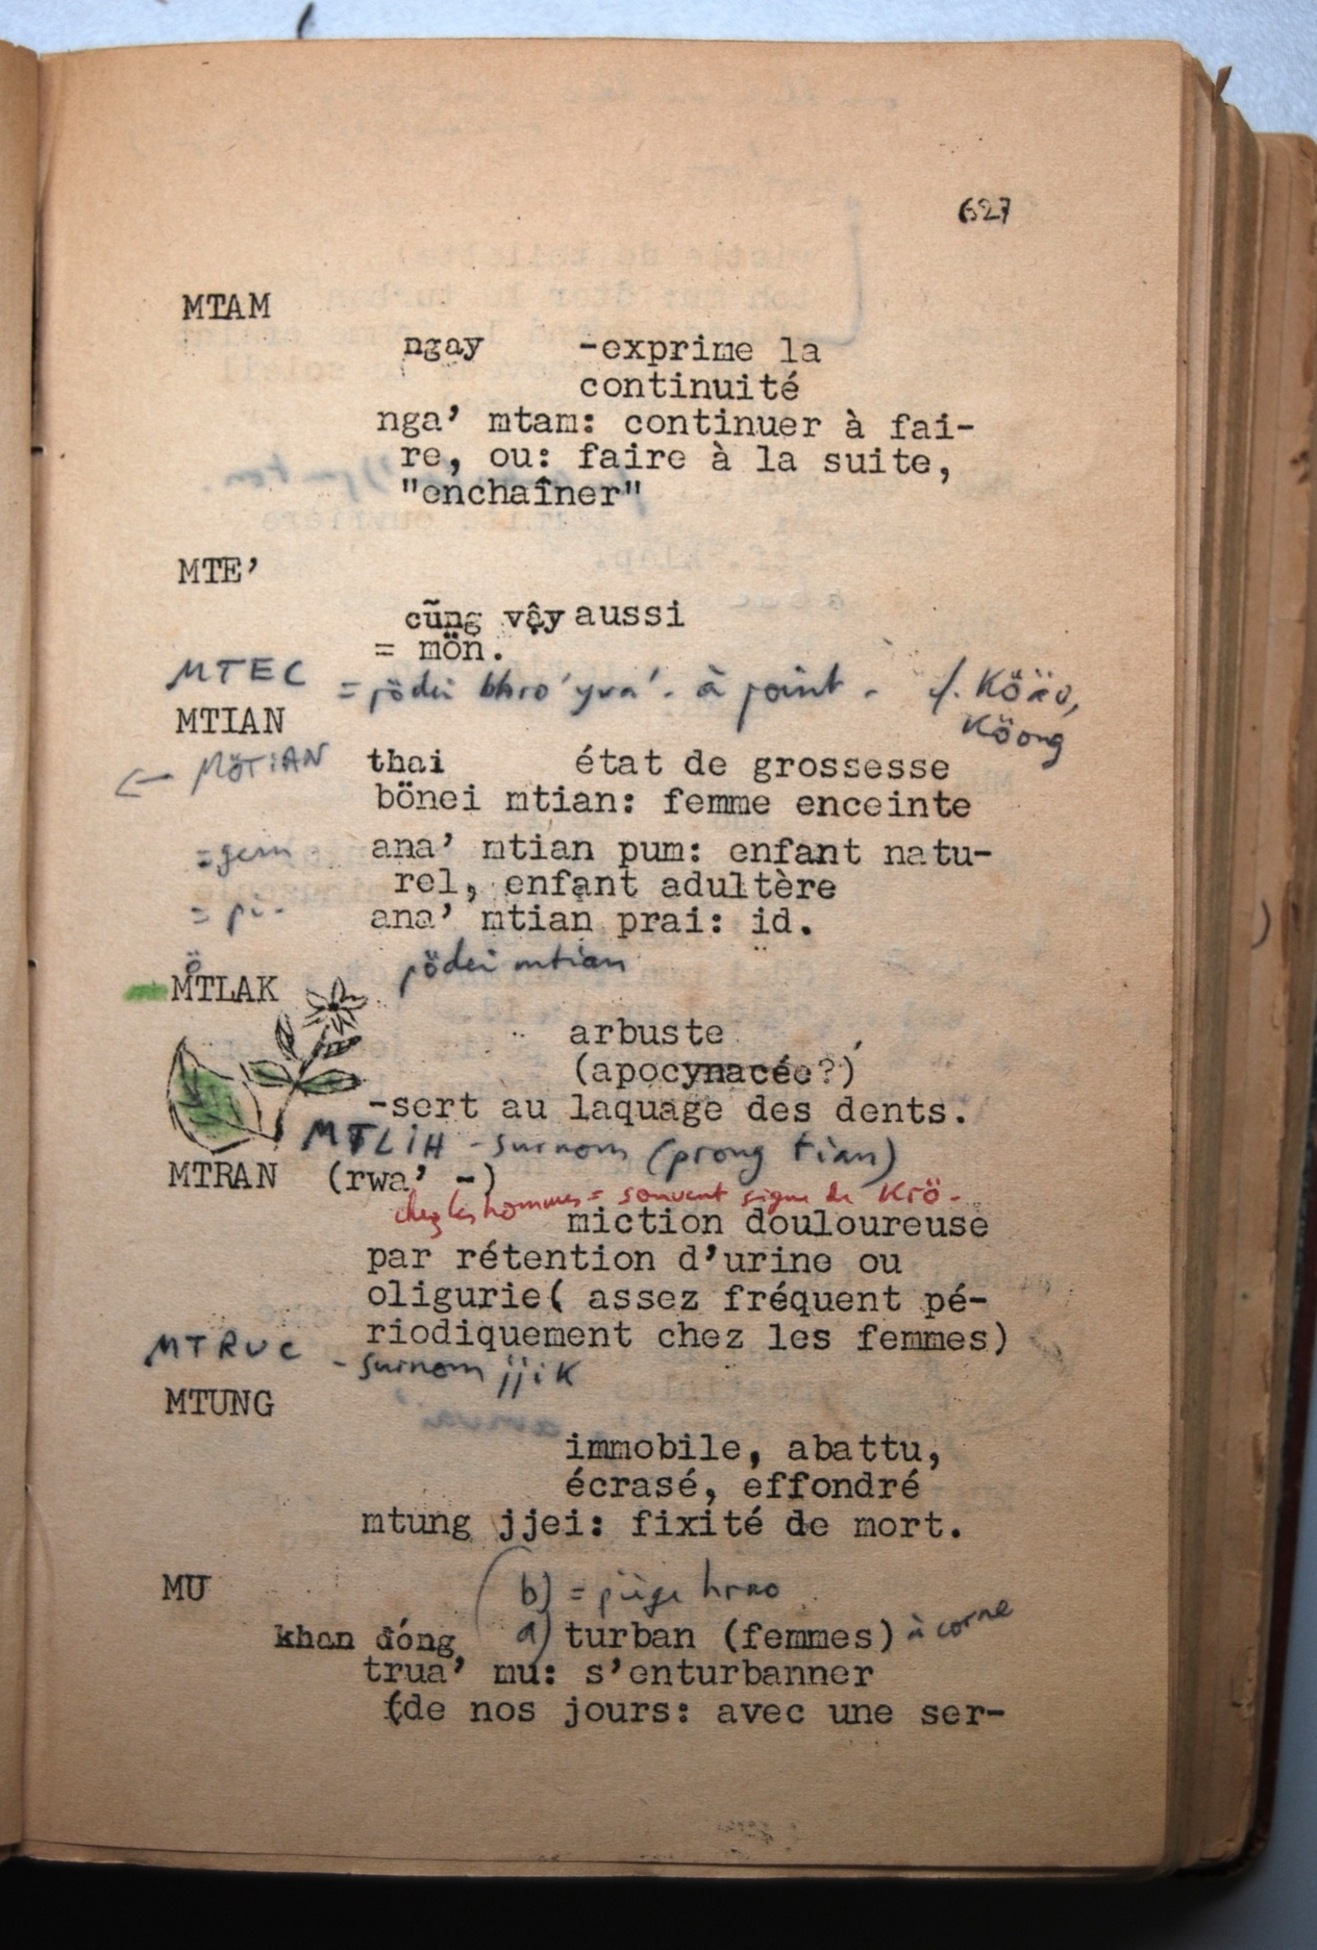 627
MTAM
ngay -exprime la
continuité
nga’ mtam: continuer à fai-
re, ou: faire à la suite,
"enchaîner"
MTE’
cũng vậy aussi
= mön.
MTEC = pödei bhro’ yua’. à point. cf. Köäo,
Köong
MTIAN
← MÖTIAN thai état de grossesse
bönei mtian: femme enceinte
= gem ana’ mtian pum: enfant natu-
rel, enfant adultère
ana’ mtian prai: id.
pödei mtian
ö
MTLAK
arbuste
(apocynacée?)
-sert au laquage des dents.
MTLIH - surnom (prong tian)
MTRAN (rwa’ -)
chez les hommes = souvent signe de Krö.
miction douloureuse
par rétention d’urine ou
oligurie( assez fréquent pé-
riodiquement chez les femmes)
MTRUC - surnom jjik
MTUNG
immobile, abattu,
écrasé, effondré
mtung jjei: fixité de mort.
MU b) = piège hrao
khan đóng a) turban (femmes) à corne
trua’ mu: s’enturbanner
(de nos jours: avec une ser-